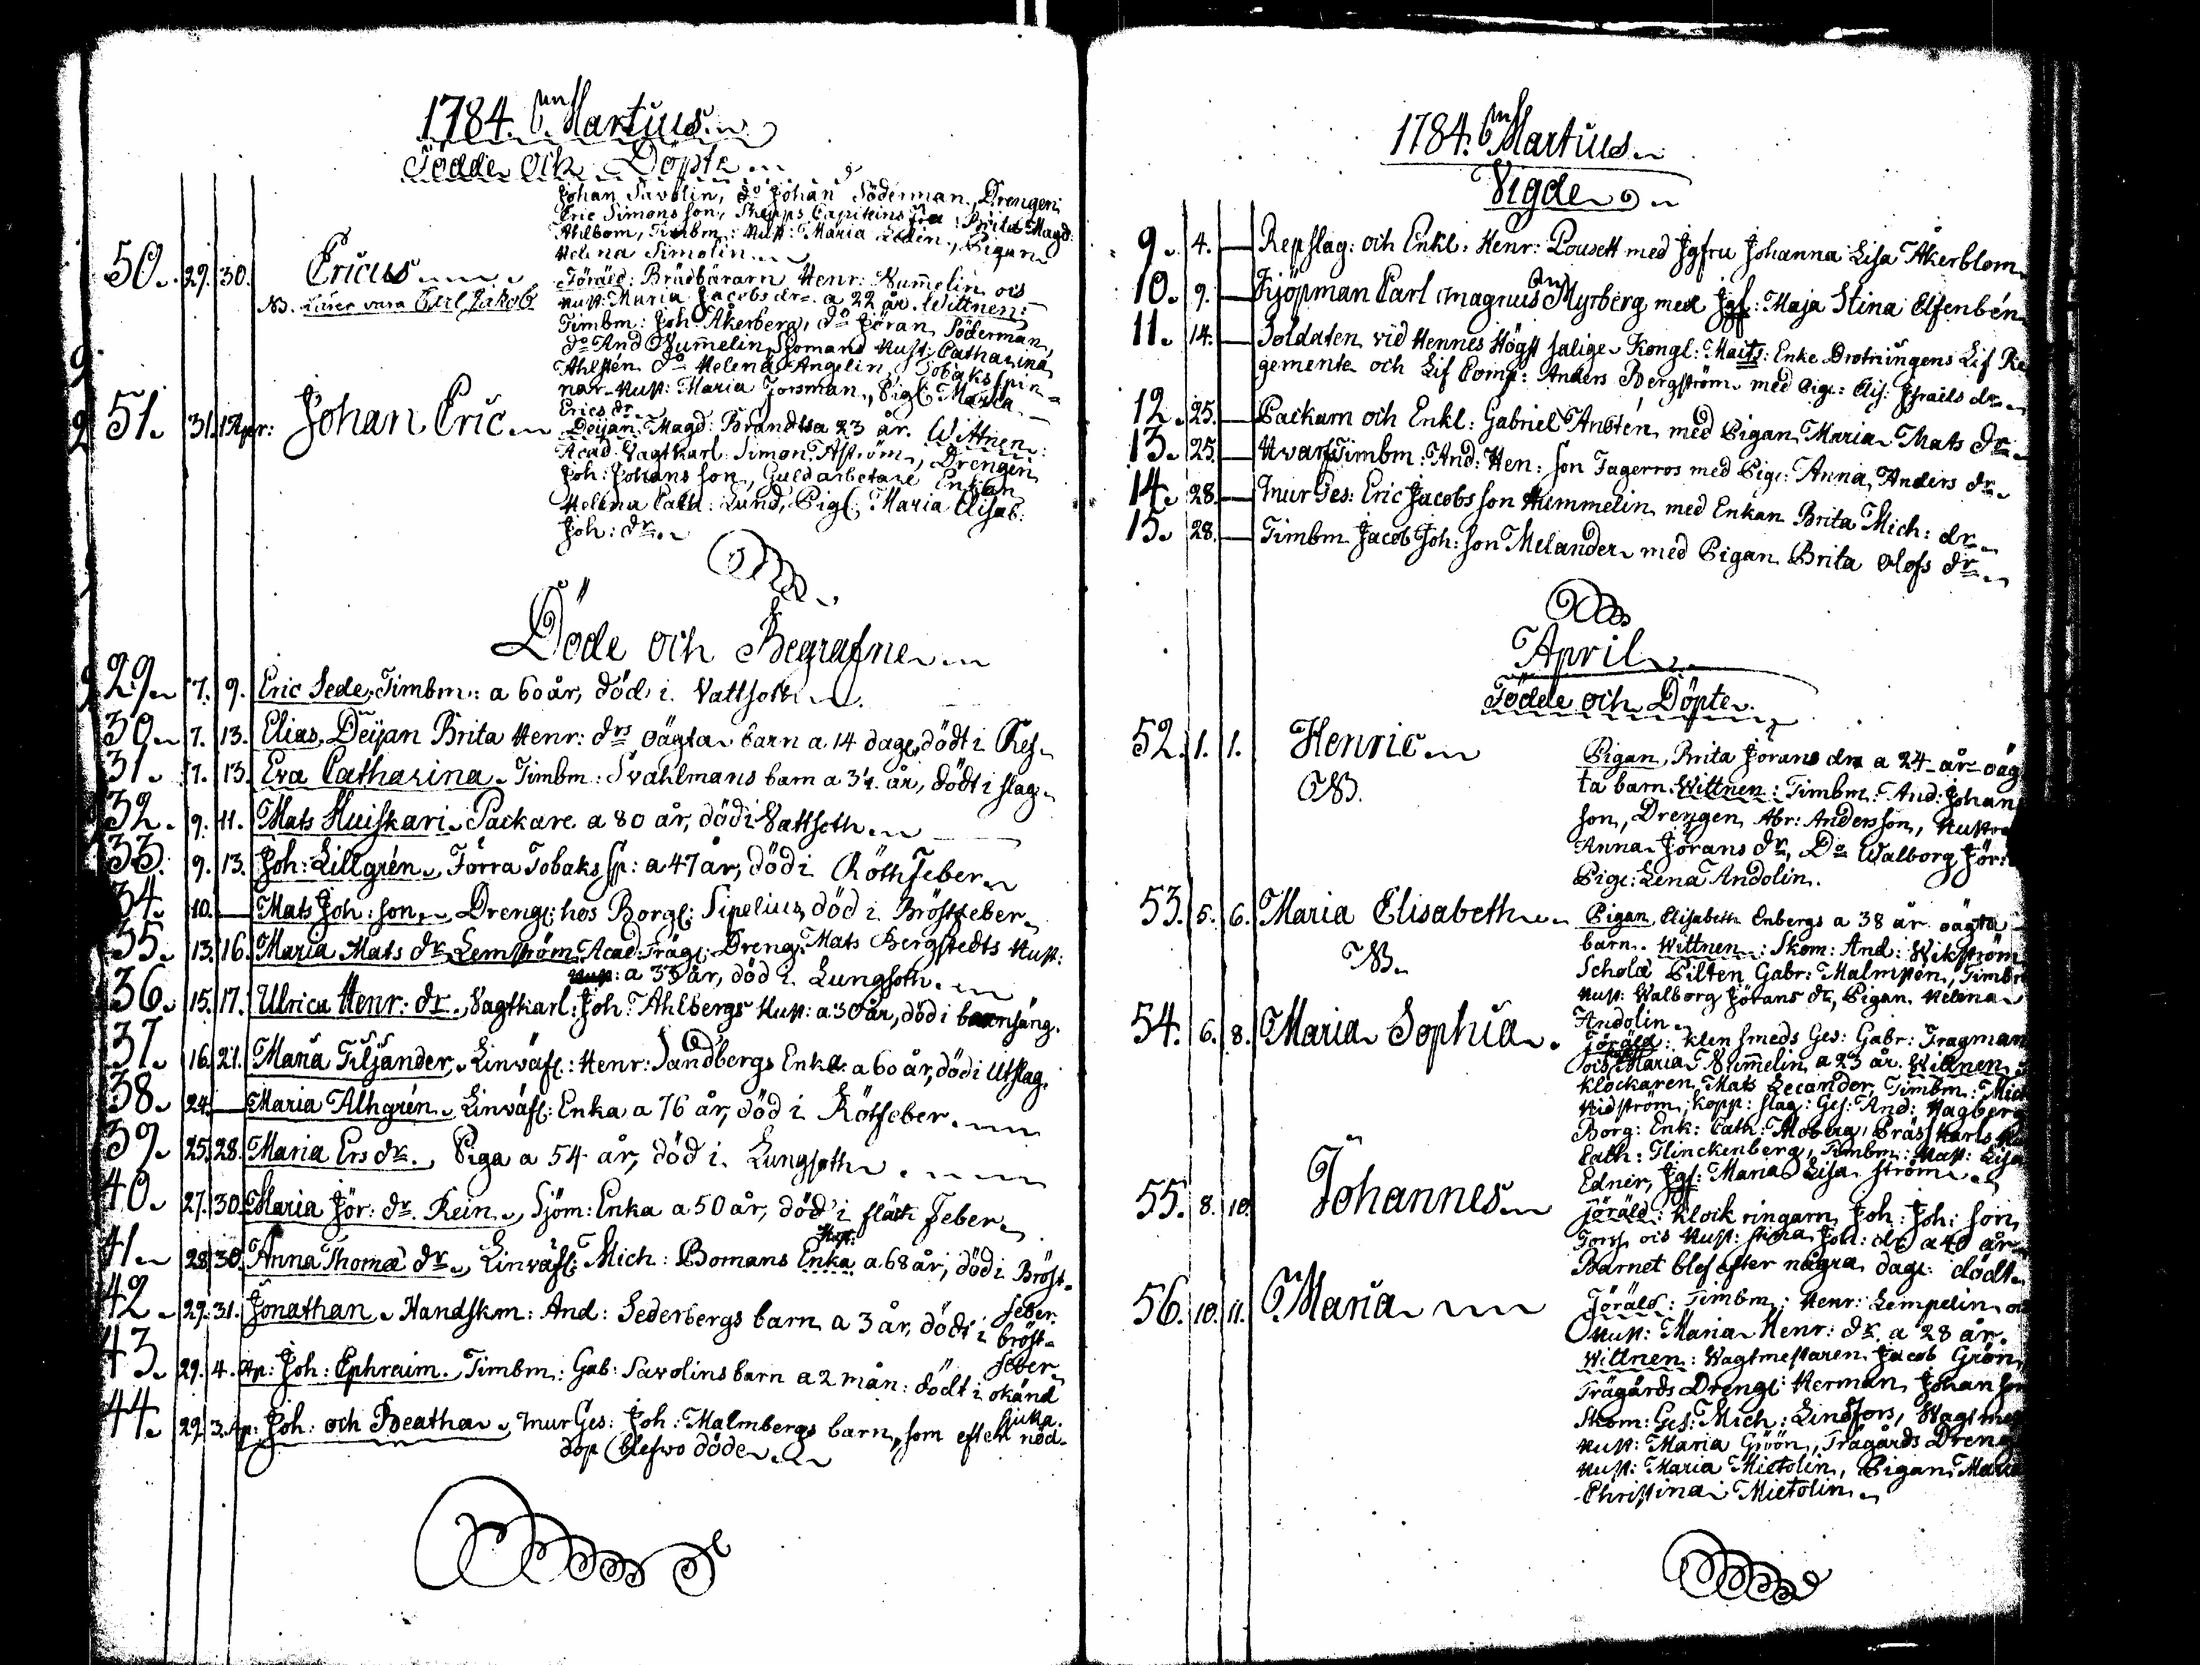 1784. Martius.
Födde och Döpte
Johan Savolin, do Johan Söderman, Drengen
Eric Simons son, Skepps Capiteins Fru Brita Magd:
Ahlbom, Timbm: Hust: Maria Ledin, Pigan
Helena Simolin
50. 29. 30. Ericus
Föräld: Brudbärarn Henr: Numelin ois
NB. Lärer vara Eril Jakob
Hust: Maria Jacobs dr. a 22 år. Wittnen:
Timbm: Joh: Åkerberg, do Jöran Söderman,
do And Numelin, Sjömans Hust: Catharina
Ahlstén do Helena Angelin, Tobaks spin-
nar Hust: Maria Forsman, Pig: Maria
Erics dr.
51. 31. 1 Apr: Johan Eric
Deijan Magd: Brandts a 23 år. Wittnen:
Acad: Vagtkarl: Simon Åström, Drengen
Joh: Johans son, Guldarbetare Enkan
Helena Cath: Lund, Pig: Maria Elisab:
Joh: dr.
Döde och Begrafne
29. 7. 9. Eric Sede, Timbm: a 60 år, död i Vattsoth
30. 7. 13. Elias, Deijan Brita Henr: drs oägta barn a 14 dage, dödt i Ref
31. 7. 13. Eva Catharina Timbm: Svahlmans barn a 3¼ år, dödt i slag
32. 9. 11. Mats Huiskari Packare a 80 år, död i Vattsoth
33. 9. 13. Joh: Lillgrén, Förra Tobaks Sp: a 47 år, död i Röthfeber
34. 10. — Mats Joh: son, Dreng: hos Borg: Sipelius, död i Bröstfeber
35. 13. 16. Maria Mats dr Lemström Acad: Träg: Dreng: Mats Bergstedts Hust:
a 33 år, död i Lungsoth.
36. 15. 17. Ulrica Henr: dr. Vagtkarl: Joh: Ahlbergs Hust: a 30 år, död i barnsäng.
37. 16. 21. Maria Filjander, Linväf: Henr: Sandbergs Enka a 60 år, död i Utslag.
38. 24. — Maria Alhgrén, Linväf: Enka a 76 år, död i Rötfeber.
39. 25. 28. Maria Ers dr. Piga a 54 år, död i Lungsoth
40. 27. 30. Maria Jör: dr. Rein, Sjöm: Enka a 50 år, död i fläck Feber
Hust:
41. 28. 30. Anna Thomæ dr. Linväf: Mich: Bomans Enka a 68 år, död i Bröst-
feber.
42. 29. 31. Jonathan Handskm: And: Sederbergs barn a 3 år, dödt i bröst-
feber
43. 29. 4. Ap: Joh: Ephraim. Timbm: Gab: Savolins barn a 2 mån: dödt i okänd
sjuka.
44. 29. 3. Ap: Joh: och Beatha, MurGes: Joh: Malmbergs barn, som efter nöd-
dop blefwo döde
1784. Martius
Vigde
9. 4. — Repslag: och Enkl: Henr: Pousett med Jgfru Johanna Lisa Åkerblom
10. 9. — Kjöpman Carl Magnus Myrberg med Jgf: Maja Stina Elfenbén
11. 14. — Soldaten vid Hennes Högst salige Kongl: Maits: Enke Drotningens Lif Re
gemente och Lif Comp: Anders Bergström med Pig: Elis: Israils dr.
12. 25. — Packarn och Enkl: Gabriel Anstén med Pigan Maria Mats dr.
13. 25. — Hvarfs Timbm: And: Hen: son Fagerros med Pig: Anna Anders dr.
14. 28. — MurGes: Eric Jacobs son Hummelin med Enkan Brita Mich: dr.
15. 28. — Timbm Jacob Joh: son Melander med Pigan Brita Olofs dr.
April
Födde och Döpte.
52. 1. 1. Henric
Pigan, Brita Jörans dr a 24 år oäg
W.
ta barn. Wittnen: Timbm: And: Johan
son, Drengen Abr: Andersson, Hustr
Anna Jörans dr, Do Walborg Jör:
Pig: Lena Andolin.
53. 5. 6. Maria Elisabeth
Pigan, Elisabeth Enbergs a 38 år oägta
W.
barn. Wittnen: Skom: And: Wikström
Schola Pilten Gabr: Malmstén, Timbr
Hust: Walborg Jörans dr, Pigan Helena
Andolin.
54. 6. 8. Maria Sophia
Föräld: Klensmeds Ges: Gabr: Tragman
ois Maria Numelin a 23 år. Wittnen:
Klockaren Mats Lecander, Timbm: Mich
Widström, Kopp: slag: Ges: And: Hagberg
Borg: Enk: Cath: Moberg, Präst Karls
Cath: Flinckenberg, Timbm: Hust: Lisa
Ednér, Jgf: Maria Lisa Ström
55. 8. 10. Johannes
Föräld: Klock ringarn Joh: Joh: son
Forss ois Hust: Stina Joh: dr a 40 år
Barnet blef efter några dage dödt
56. 10. 11. Maria
Föräld: Timbm: Henr: Lempelin o
Hust: Maria Henr: dr. a 28 år.
Wittnen: Wagtmestaren Jacob Grön
Trägårds Dreng: Herman Johan son
Skom: Ges: Mich: Lindfors, Wagtmes
Hust: Maria Grön, Trägårds Dreng
Hust: Maria Mietolin, Pigan Maria
Christina Mietolin